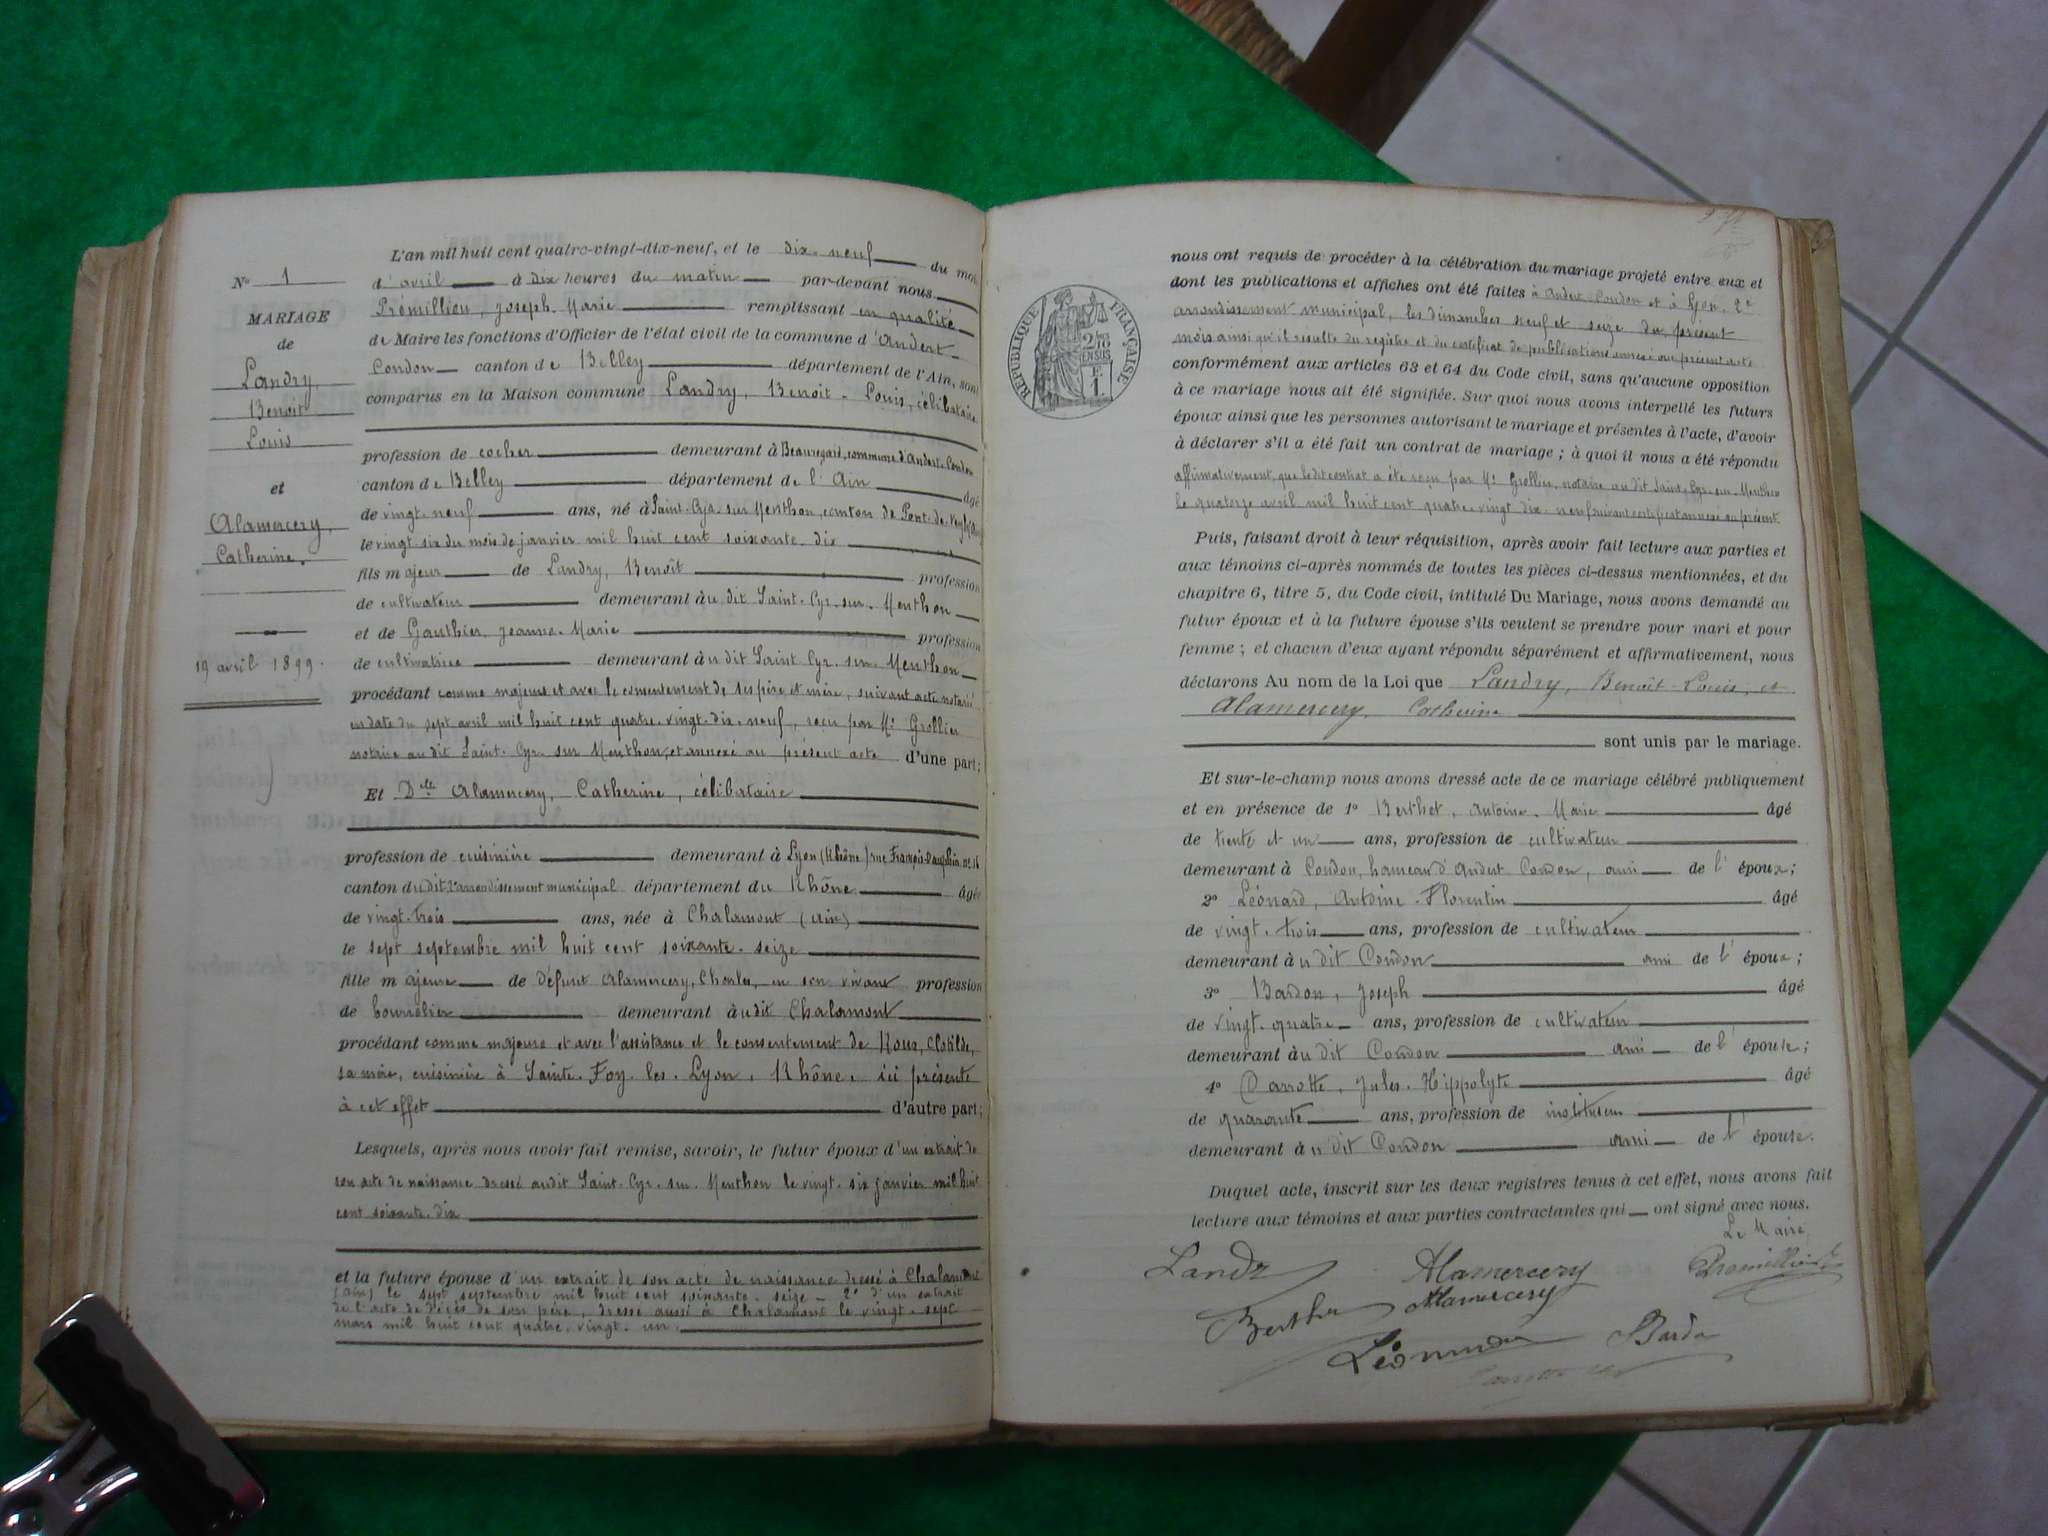 N° 1
MARIAGE
de
Landry
Benoit
Louis
et
Alamercery,
Catherine.
19 avril 1899.
L'an mil huit cent quatre-vingt-dix-neuf, et le dix-neuf du mois
d'avril à dix heures du matin par-devant nous
Prémillieu, Joseph-Marie remplissant en qualité
de Maire les fonctions d'Officier de l'état civil de la commune d'Andert-
Condon canton de Belley département de l'Ain, sont
comparus en la Maison commune Landry, Benoit-Louis, célibataire
profession de cocher demeurant à Beauregard, commune d'Andert-Condon
canton de Belley département de l'Ain âgé
de vingt-neuf ans, né à Saint-Cyr-sur-Menthon, canton de Pont-de-Veyle (Ain)
le vingt-six du mois de janvier mil huit cent soixante-dix
fils majeur de Landry, Benoît profession
de cultivateur demeurant àu dit Saint-Cyr-sur-Menthon
et de Gauthier, Jeanne-Marie profession
de cultivatrice demeurant àu dit Saint-Cyr-sur-Menthon
procédant comme majeur et avec le consentement de ses père et mère, suivant acte notarié
en date du sept avril mil huit cent quatre-vingt-dix-neuf, reçu par Me Grollier
notaire au dit Saint-Cyr-sur-Menthon, et annexé au présent acte d'une part;
Et Dlle Alamercery, Catherine, célibataire
profession de cuisinière demeurant à Lyon (Rhône) rue François-Dauphin n° 16
canton dudit 2e arrondissement municipal département du Rhône âgée
de vingt-trois ans, née à Chalamont (Ain)
le sept septembre mil huit cent soixante-seize
fille majeure de défunt Alamercery, Charles, en son vivant profession
de bourrelier demeurant àudit Chalamont
procédant comme majeure et avec l'assistance et le consentement de Roux, Clotilde,
sa mère, cuisinière à Sainte-Foy-les-Lyon, Rhône, ici présente
à cet effet d'autre part;
Lesquels, après nous avoir fait remise, savoir, le futur époux d'un extrait de
son acte de naissance dressé audit Saint-Cyr-sur-Menthon le vingt-six janvier mil huit
cent soixante-dix
et la future épouse d'un extrait de son acte de naissance dressé à Chalamont
(Ain) le sept septembre mil huit cent soixante-seize - 2° d'un extrait
de l'acte de décès de son père, dressé aussi à Chalamont le vingt-sept
mars mil huit cent quatre-vingt-un.
RÉPUBLIQUE FRANÇAISE
2/10
EN SUS
F.
1.
nous ont requis de procéder à la célébration du mariage projeté entre eux et
dont les publications et affiches ont été faites à Andert-Condon et à Lyon, 2e
arrondissement municipal, les dimanches neuf et seize du présent
mois ainsi qu'il résulte du registre et du certificat de publications annexé au présent acte
conformément aux articles 63 et 64 du Code civil, sans qu'aucune opposition
à ce mariage nous ait été signifiée. Sur quoi nous avons interpellé les futurs
époux ainsi que les personnes autorisant le mariage et présentes à l'acte, d'avoir
à déclarer s'il a été fait un contrat de mariage ; à quoi il nous a été répondu
affirmativement, que ledit contrat a été reçu par Me Grollier, notaire au dit Saint-Cyr-sur-Menthon
le quatorze avril mil huit cent quatre-vingt-dix-neuf suivant certificat annexé au présent.
Puis, faisant droit à leur réquisition, après avoir fait lecture aux parties et
aux témoins ci-après nommés de toutes les pièces ci-dessus mentionnées, et du
chapitre 6, titre 5, du Code civil, intitulé Du Mariage, nous avons demandé au
futur époux et à la future épouse s'ils veulent se prendre pour mari et pour
femme ; et chacun d'eux ayant répondu séparément et affirmativement, nous
déclarons Au nom de la Loi que Landry, Benoît-Louis, et
Alamercery, Catherine
sont unis par le mariage.
Et sur-le-champ nous avons dressé acte de ce mariage célébré publiquement
et en présence de 1° Berthet, Antoine-Marie âgé
de trente et un ans, profession de cultivateur
demeurant à Condon, hameau d'Andert-Condon, ami de l'époux;
2° Léonard, Antoine-Florentin âgé
de vingt-trois ans, profession de cultivateur
demeurant àu dit Condon ami de l'époux;
3° Bardon, Joseph âgé
de vingt-quatre ans, profession de cultivateur
demeurant àu dit Condon ami de l'épouse;
4° Darrotte, Jules-Hippolyte âgé
de quarante ans, profession de instituteur
demeurant àu dit Condon ami de l'épouse.
Duquel acte, inscrit sur les deux registres tenus à cet effet, nous avons fait
lecture aux témoins et aux parties contractantes qui ont signé avec nous.
Le Maire,
Landry Alamercery Prémillieu
Berthet Alamercery
Léonard Bardon